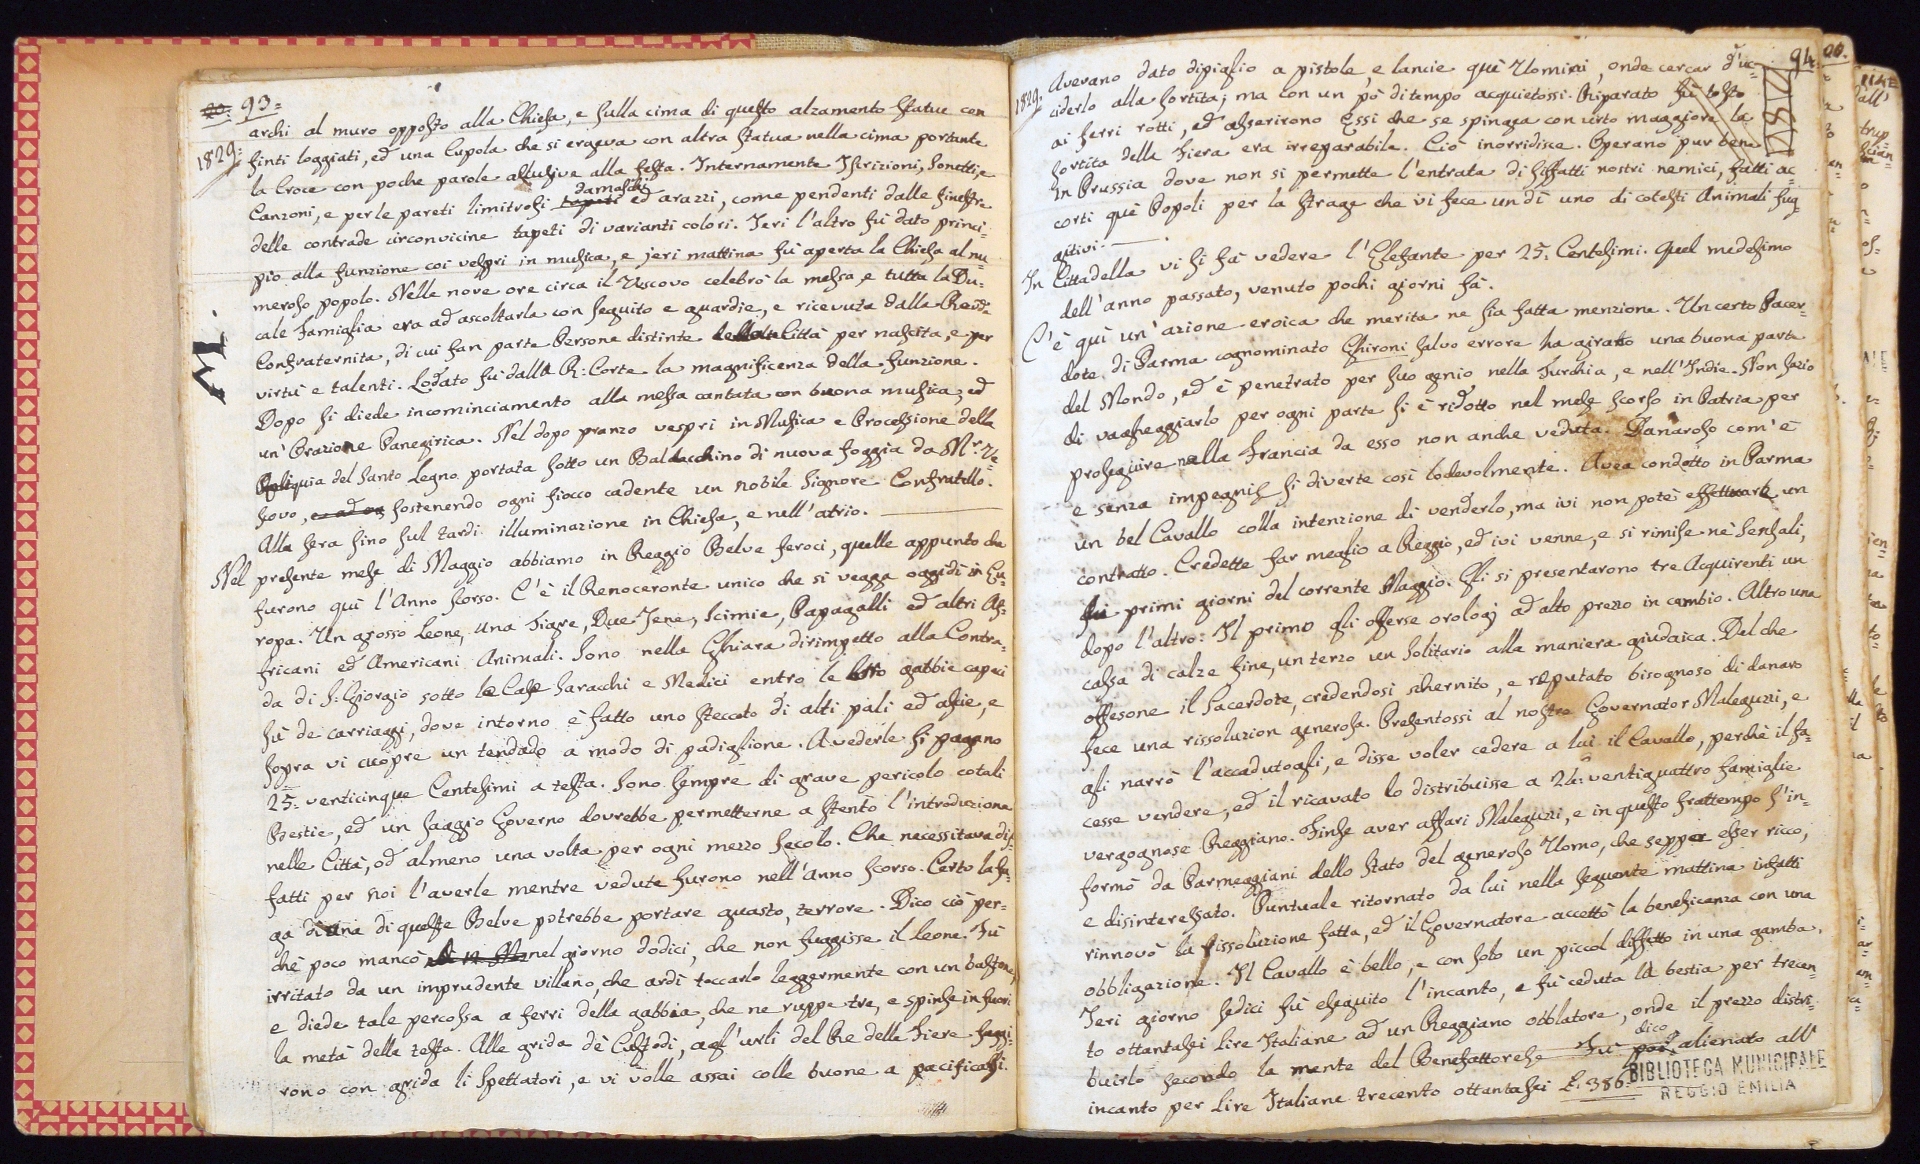 20. 93=
1829:
archi al muro opposto alla Chiesa, e sulla cima di questo alzamento statue con
finti loggiati, ed una Cupola che si ergeva con altra statua nella cima portante
la Croce con poche parole allusive alla festa. Internamente Iscrizioni, Sonetti, e
Canzoni, e per le pareti limitrofi tapeti damaschi ed arazzi, come pendenti dalle finestre
delle contrade circonvicine tapeti di varianti colori. Jeri l'altro fù dato princi=
pio alla funzione coi vespri in musica, e jeri mattina fù aperta la Chiesa al nu=
meroso popolo. Nelle nove ore circa il Vescovo celebrò la messa, e tutta la Du=
cale Famiglia era ad ascoltarla con seguito e guardie, e ricevuta dalla Revda
Confraternita, di cui fan parte Persone distinte della Città per nascita, e per
virtù e talenti. Lodato fù dalla R: Corte la magnificenza della funzione.
Dopo si diede incominciamento alla messa cantata con buona musica, ed
un'Orazione Panegirica. Nel dopo pranzo vespri in Musica e Processione della
Reliquia del Santo Legno portata sotto un Baldacchino di nuova foggia da Mr. Ve=
scovo, sostenendo ogni fiocco cadente un nobile Signore Confratello.
Alla sera fino sul tardi illuminazione in Chiesa, e nell'atrio.
Nel presente mese di Maggio abbiamo in Reggio Belve feroci, quelle appunto che
furono quì l'Anno scorso. C'è il Renoceronte unico che si vegga oggidì in Eu=
ropa. Un grosso Leone, una Tigre, Due Jene, Scimie, Papagalli ed altri Af=
fricani ed Americani Animali. Sono nella Ghiara dirimpetto alla Contra=
da di S: Giorgio sotto le Case Saracchi e Medici entro le loro gabbie capaci
sù de carriaggi, dove intorno è fatto uno steccato di alti pali ed assie, e
sopra vi cuopre un tendado a modo di padiglione. A vederle si pagano
25= venticinque Centesimi a testa. Sono sempre di grave pericolo cotali
Bestie, ed un saggio Governo dovrebbe permetterne a stento l'introduzione
nelle Città, od almeno una volta per ogni mezzo secolo. Che necessitava dif=
fatti per noi l'averle mentre vedute furono nell'anno scorso. Certo la fu=
ga di una di queste Belve potrebbe portare guasto, terrore. Dico ciò per=
chè poco mancò nel giorno dodici, che non fuggisse il Leone. Fù
irritato da un imprudente villano, che ardì toccarlo leggermente con un bastone,
e diede tale percossa a ferri della gabbia, che ne ruppe tre, e spinse in fuori
la metà della testa. Alle grida dè Custodi, agl'urli del Re delle Fiere fuggi=
rono con grida li Spettatori, e vi volle assai colle buone a pacificarsi.
94.
1829.
Avevano dato dipiglio a pistole, e lancie què Uomini, onde cercar d'uc=
ciderlo alla sortita; ma con un pò di tempo acquietossi. Riparato fù tosto
ai ferri rotti, ed asserirono Essi che se spingea con urto maggiore la
sortita della Fiera era irreparabile. Ciò inorridisce. Operano pur bene
in Prussia dove non si permette l'entrata di siffatti nostri nemici, fatti ac=
corti què Popoli per la strage che vi fece un dì uno di cotesti Animali fug=
gitivi.
In Cittadella vi si fà vedere l'Elefante per 25: Centesimi. Quel medesimo
dell'anno passato, venuto pochi giorni fà.
C'è quì un'azione eroica che merita ne sia fatta menzione. Un certo Sacer=
dote di Parma cognominato Ghironi salvo errore ha giratto una buona parte
del Mondo, ed è penetrato per suo genio nella Turchia, e nell'Indie. Non sazio
di vagheggiarlo per ogni parte si è ridotto nel mese scorso in Patria per
proseguire nella Francia da esso non anche veduta. Danaroso com'è
e senza impegni si diverte così lodevolmente. Avea condotto in Parma
un bel Cavallo colla intenzione di venderlo, ma ivi non potè effettuare un
contratto. Credette far meglio a Reggio, ed ivi venne, e si rimise nè Sensali,
primi giorni del corrente Maggio. Gli si presentarono tre Acquirenti un
dopo l'altro: Il primo gli offerse orologj ad alto prezzo in cambio. Altro una
cassa di calze fine, un terzo un Solitario alla maniera giudaica. Del che
offesone il Sacerdote, credendosi schernito, e reputato bisognoso di danaro
fece una rissoluzion generosa. Presentossi al nostro Governator Maleguzzi, e
gli narrò l'accadutogli, e disse voler cedere a lui il Cavallo, perchè il fa=
cesse vendere, ed il ricavato lo distribuisse a 24: ventiquattro famiglie
vergognose Reggiane. Finse aver affari Maleguzzi, e in questo frattempo s'in=
formò da Parmeggiani dello stato del generoso Uomo, che seppe esser ricco,
e disinteressato. Puntuale ritornato da lui nella seguente mattina infatti
rinnovò la rissoluzione fatta, ed il Governatore accettò la beneficanza con una
obbligazione. Il Cavallo è bello, e con solo un piccol diffetto in una gamba.
Jeri giorno sedici fù eseguito l'incanto, e fù ceduta la bestia per trecen=
to ottantasei Lire Italiane ad un Reggiano obblatore, onde il prezzo distri=
buirlo secondo la mente del Benefattore. Fù poi, dico, alienato all'
incanto per Lire Italiane trecento ottantasei L. 386.
BIBLIOTECA MUNICIPALE
REGGIO EMILIA